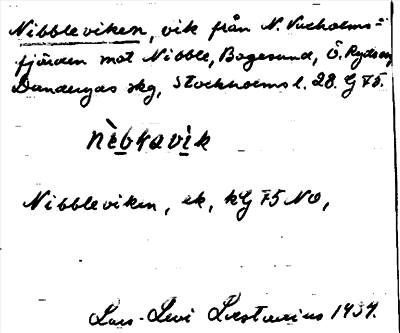 Nibbleviken, vik från N. Vaxholms=
fjärden mot Nibble, Bogesund, Ö. Ryds sn,
Danderyds skg, Stockholms l. 28. G 75.
nìbkavìk
Nibbleviken, ek, kG 75 NO,
Lars-Levi Læstadius 1934.